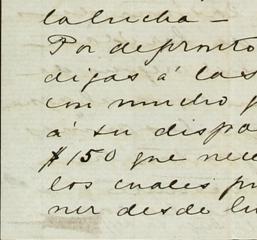 la lucha –
Por de pronto
digas á las
con mucho
á su dispo
$150 que nece
los cuales
ner desde lu